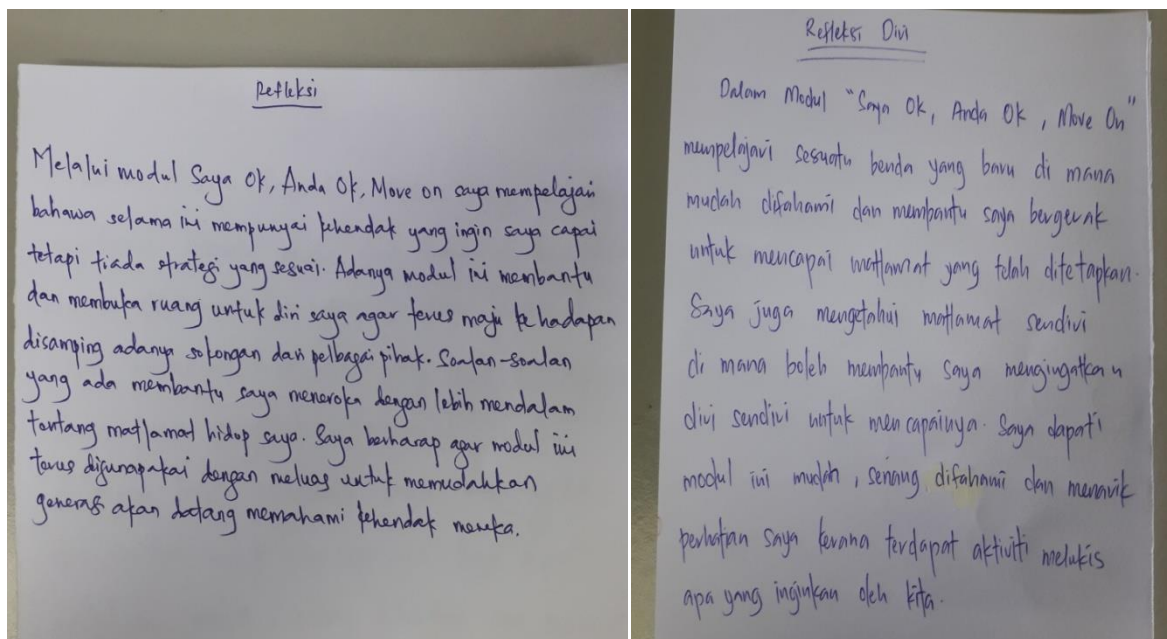 Refleksi
Melalui modul Saya Ok, Anda Ok, Move on saya mempelajari
bahawa selama ini mempunyai kehendak yang ingin saya capai
tetapi tiada strategi yang sesuai. Adanya modul ini membantu
dan membuka ruang untuk diri saya agar terus maju ke hadapan
disamping adanya sokongan dari pelbagai pihak. Soalan-soalan
yang ada membantu saya meneroka dengan lebih mendalam
tentang matlamat hidup saya. Saya berharap agar modul ini
terus digunapakai dengan meluas untuk memudahkan
generasi akan datang memahami kehendak mereka.
Refleksi Diri
Dalam Modul "Saya Ok, Anda Ok, Move On"
mempelajari sesuatu benda yang baru di mana
mudah difahami dan membantu saya bergerak
untuk mencapai matlamat yang telah ditetapkan.
Saya juga mengetahui matlamat sendiri
di mana boleh membantu saya mengingatkan
diri sendiri untuk mencapainya. Saya dapati
modul ini mudah, senang difahami dan menarik
perhatian saya kerana terdapat aktiviti melukis
apa yang inginkan oleh kita.